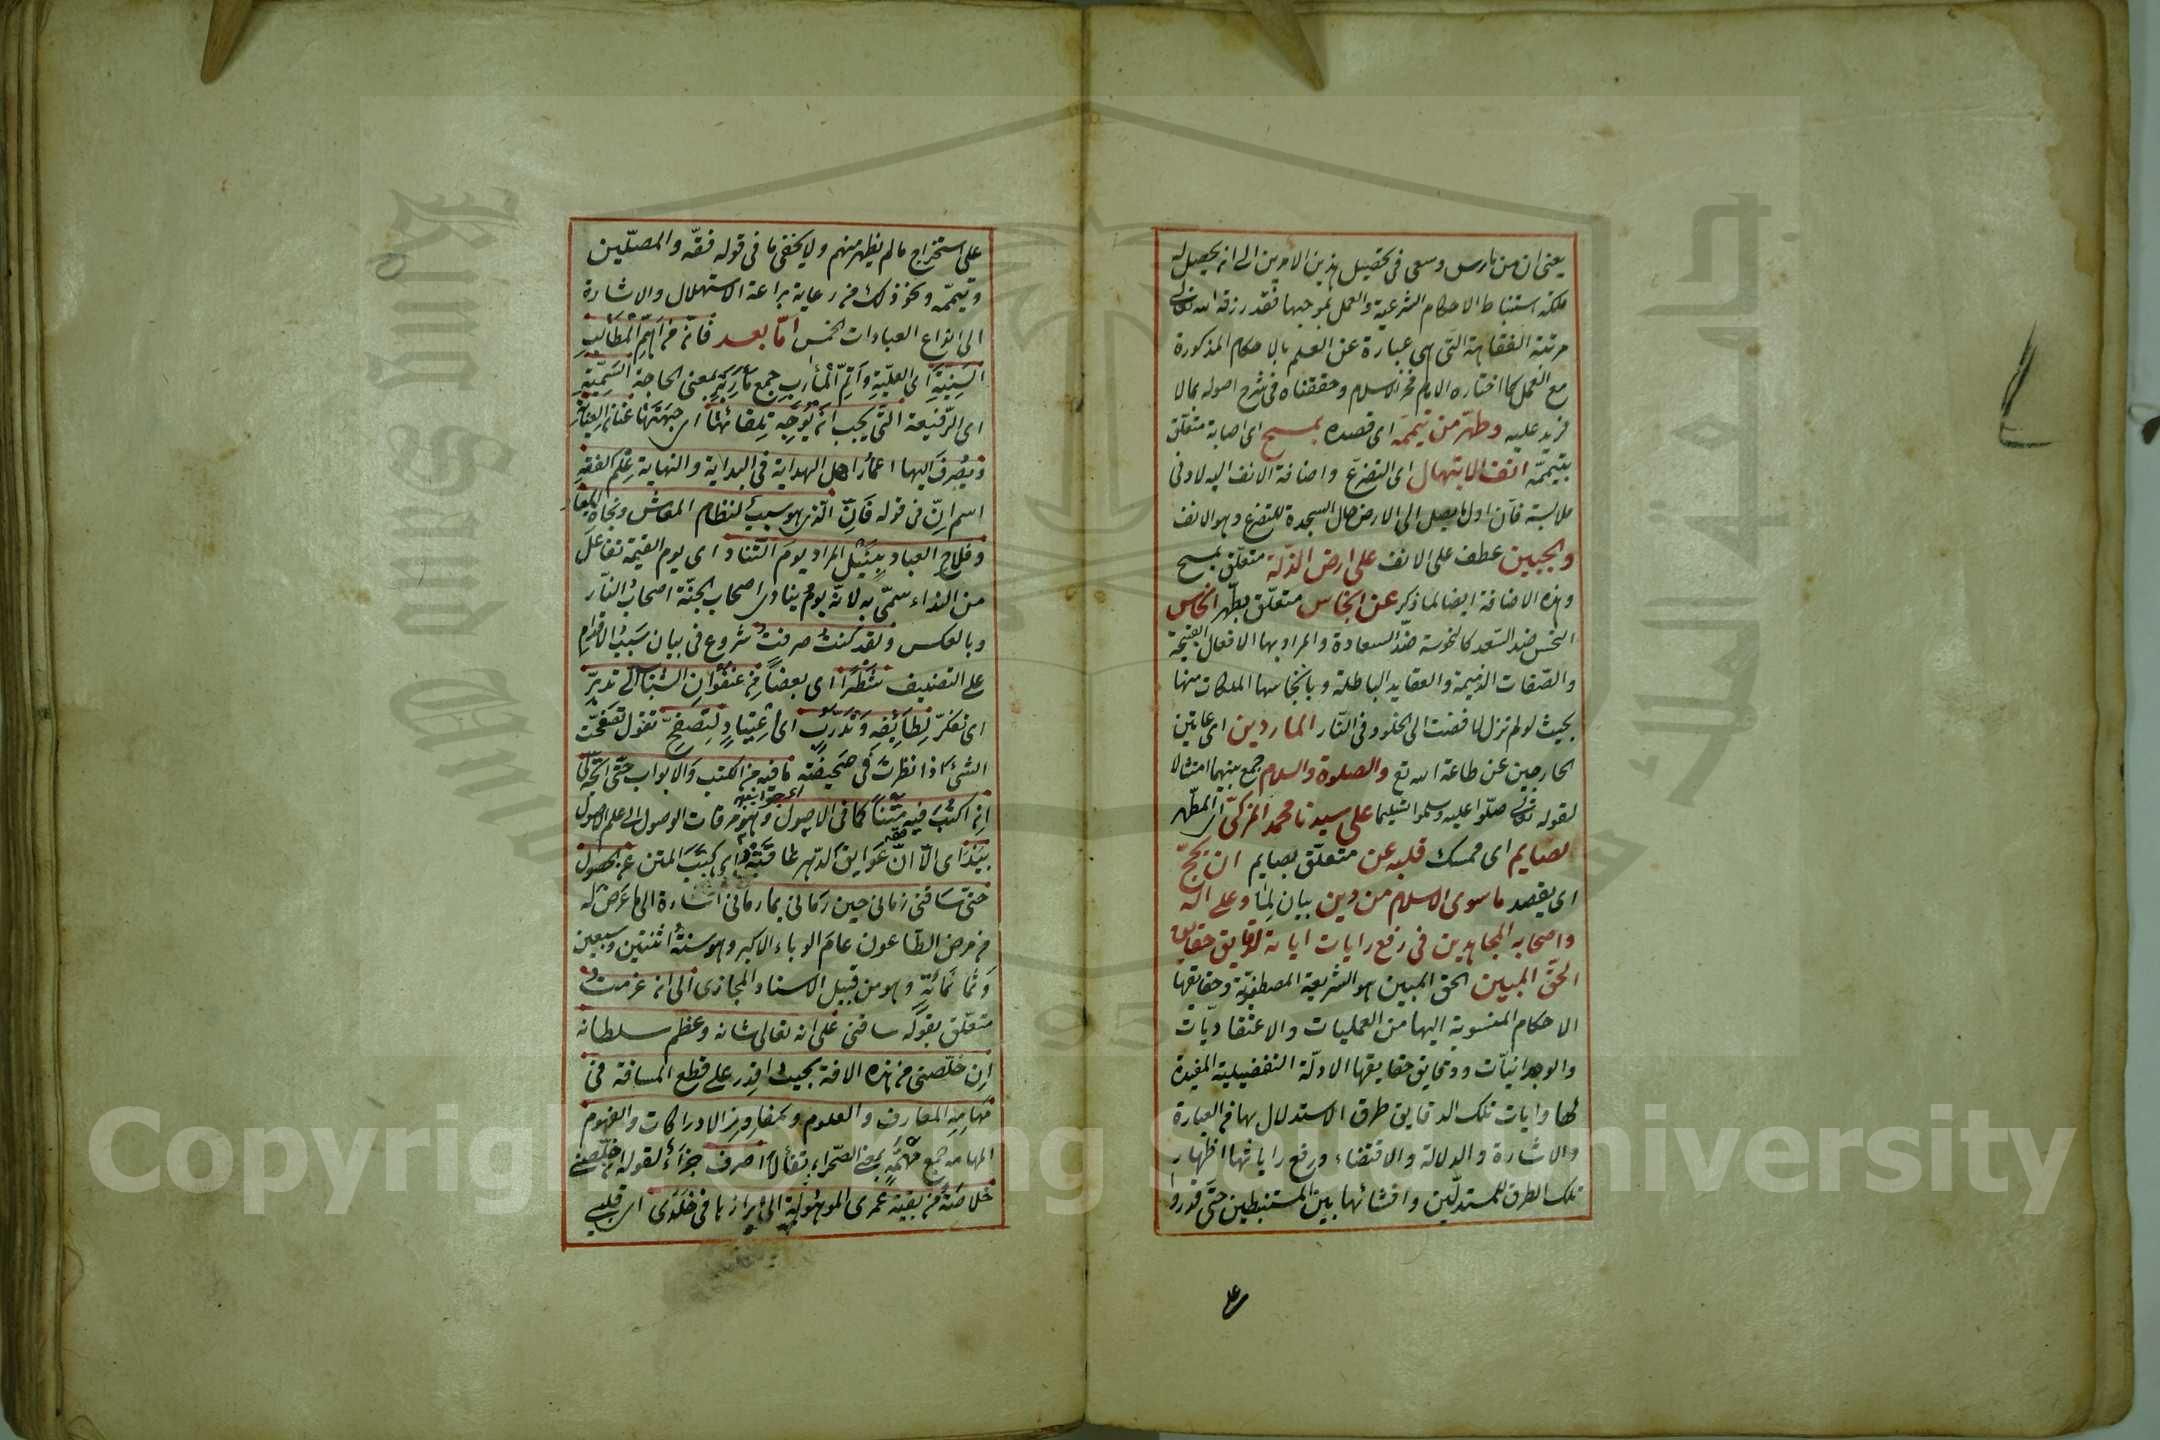 يعنى ان من مارس وسعى فى تحصيل هذين الامرين الى انه يحصل له
ملكة استنباط الاحكام الشرعية والعمل بموجبها فقد رزقه الله تعالى
مرتبة الفقاهة التى هى عبارة عن العلم بالاحكام المذكورة
مع العمل كما اختاره الامام فخر الاسلام وحققناه فى شرح اصوله بما لا
مزيد عليه وطهّر من تيممه اى قصده بمسح اى اصابة متعلق
بتيممه انف الابتهال اى التضرع واضافة الانف اليه لادنى
ملابسة فان اول ما يصل الى الارض حال السجدة للتضرع وهو الانف
والجبين عطف على الانف على ارض الذلة متعلق بمسح
وهذه الاضافة ايضا لما ذكر عن انجاس متعلق بطهّر انحاس
النحس ضد السعد كالنحوسة ضد السعادة والمراد بها الافعال القبيحة
والصفات الذميمة والعقايد الباطلة وبانجاسها الملكات منها
بحيث لو لم تزل لافضت الى الخلود فى النار الماردين اى عاتين
خارجين عن طاعة الله تع والصلوة والسلام جمع بينهما امتثالا
لقوله تعالى صلوا عليه وسلموا تسليما على سيدنا محمد المزكّى اى المطهر
لصايم اى ممسك قلبه عن متعلق بصايم ان يحجّ
اى يقصد ما سوى الاسلام من دين بيان لما وعلى اله
واصحابه المجاهدين فى رفع رايات ايات دقايق حقايق
الحق المبين الحق المبين هو الشريعة المصطفوية وحقايقها
الاحكام المنسوبة اليها من العمليات والاعتقاديات
والوجدانيّات ودقايق حقايقها الادلة التفضيلية المفيدة
لها وايات تلك الدقايق طرق الاستدلال بها من العبارة
والاشارة والدلالة والاقتضاء ورفع راياتها اظهار
تلك الطرق للمستدلين وافشائها بين المستنبطين حتى قدروا
على
على استخراج ما لم يظهر منهم ولا يخفى ما فى قوله فقه والمصلّين
وتيممه ونحو ذلك من رعاية براعة الاستهلال والاشارة
الى انواع العبادات الخمس اما بعد فانّ من اهمّ المطالب
السنية اى العلية واتمّ المأرب جمع مأربة بمعنى الحاجة السمية
اى الرفيعة التى يجب ان يوجه تلقائها اى جهتها عنان العناية
ويصرف اليها اعمار اهل الهداية فى البداية والنهاية علم الفقه
اسم انّ فى قوله فانّ الذى هو سبب لنظام المعاش ونجاة المعاد
وفلاح العباد بنيل المراد يوم التناد اى يوم القيمة تفاعل
من النداء سمّى به لانه يوم ينادى اصحاب الجنة اصحاب النار
وبالعكس ولقد كنت صرفت شروع فى بيان سبب الاقدام
على التصنيف شطرا اى بعضا من عنفوان الشباب الى تدبّر
اى تفكر لطايفه وتدرّب اى اعتياد لتصفح تقول تصفحت
الشئ اذا نظرت فى صحيفته ما فيه من الكتب والابواب حتى اتجه لى
ان اكتب فيه متنا كما فى الاصول وهو مرقات الوصول الى علم الاصول
بيد اى الا انّ عوايق الدهر عاقتنى اى كتب المتن عن حصول
حتى ساقنى زمانى حين رمانى بما رمانى اشارة الى ما عرض له
من مرض الطاعون عام الوباء الاكبر وهو سنة اثنتين وسبعين
وثمانمائة وهو من قبيل الاسناد المجازى الى ان عزمت
متعلق بقوله ساقنى على انه تعالى شانه وعظم سلطانه
ان خلصنى من هذه الافة بحيث اقدر على قطع المسافة فى
مهامه المعارف والعلوم ومفاوز الادراكات والفهوم
المهامه جمع مهمه بمعنى الصحراء اصرف جزاء لقوله ان خلصنى
خلاصة من بقية عمرى الموهوبة الى ابراز ما فى خلدى اى قلبى